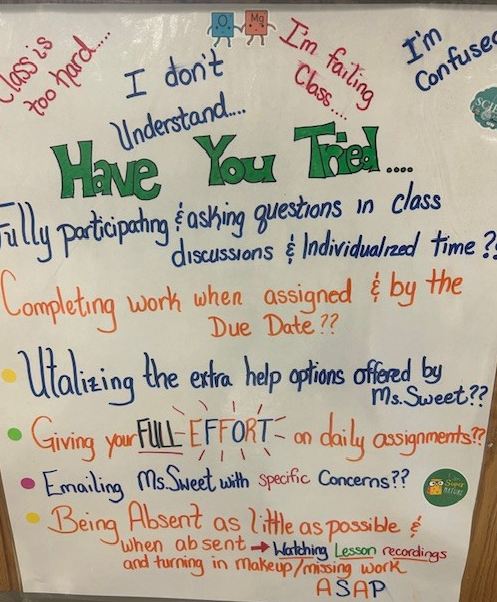 O Mg
Class is
too hard....
I don't
Understand....
I'm failing
Class....
I'm
Confused
Have You Tried....
Fully participating & asking questions in class
discussions & Individualized time??
Completing work when assigned & by the
Due Date??
Utalizing the extra help options offered by
Ms. Sweet??
Giving your FULL EFFORT on daily assignments??
Emailing Ms. Sweet with specific Concerns??
Being Absent as little as possible &
when absent → Watching Lesson recordings
and turning in makeup/missing work
ASAP